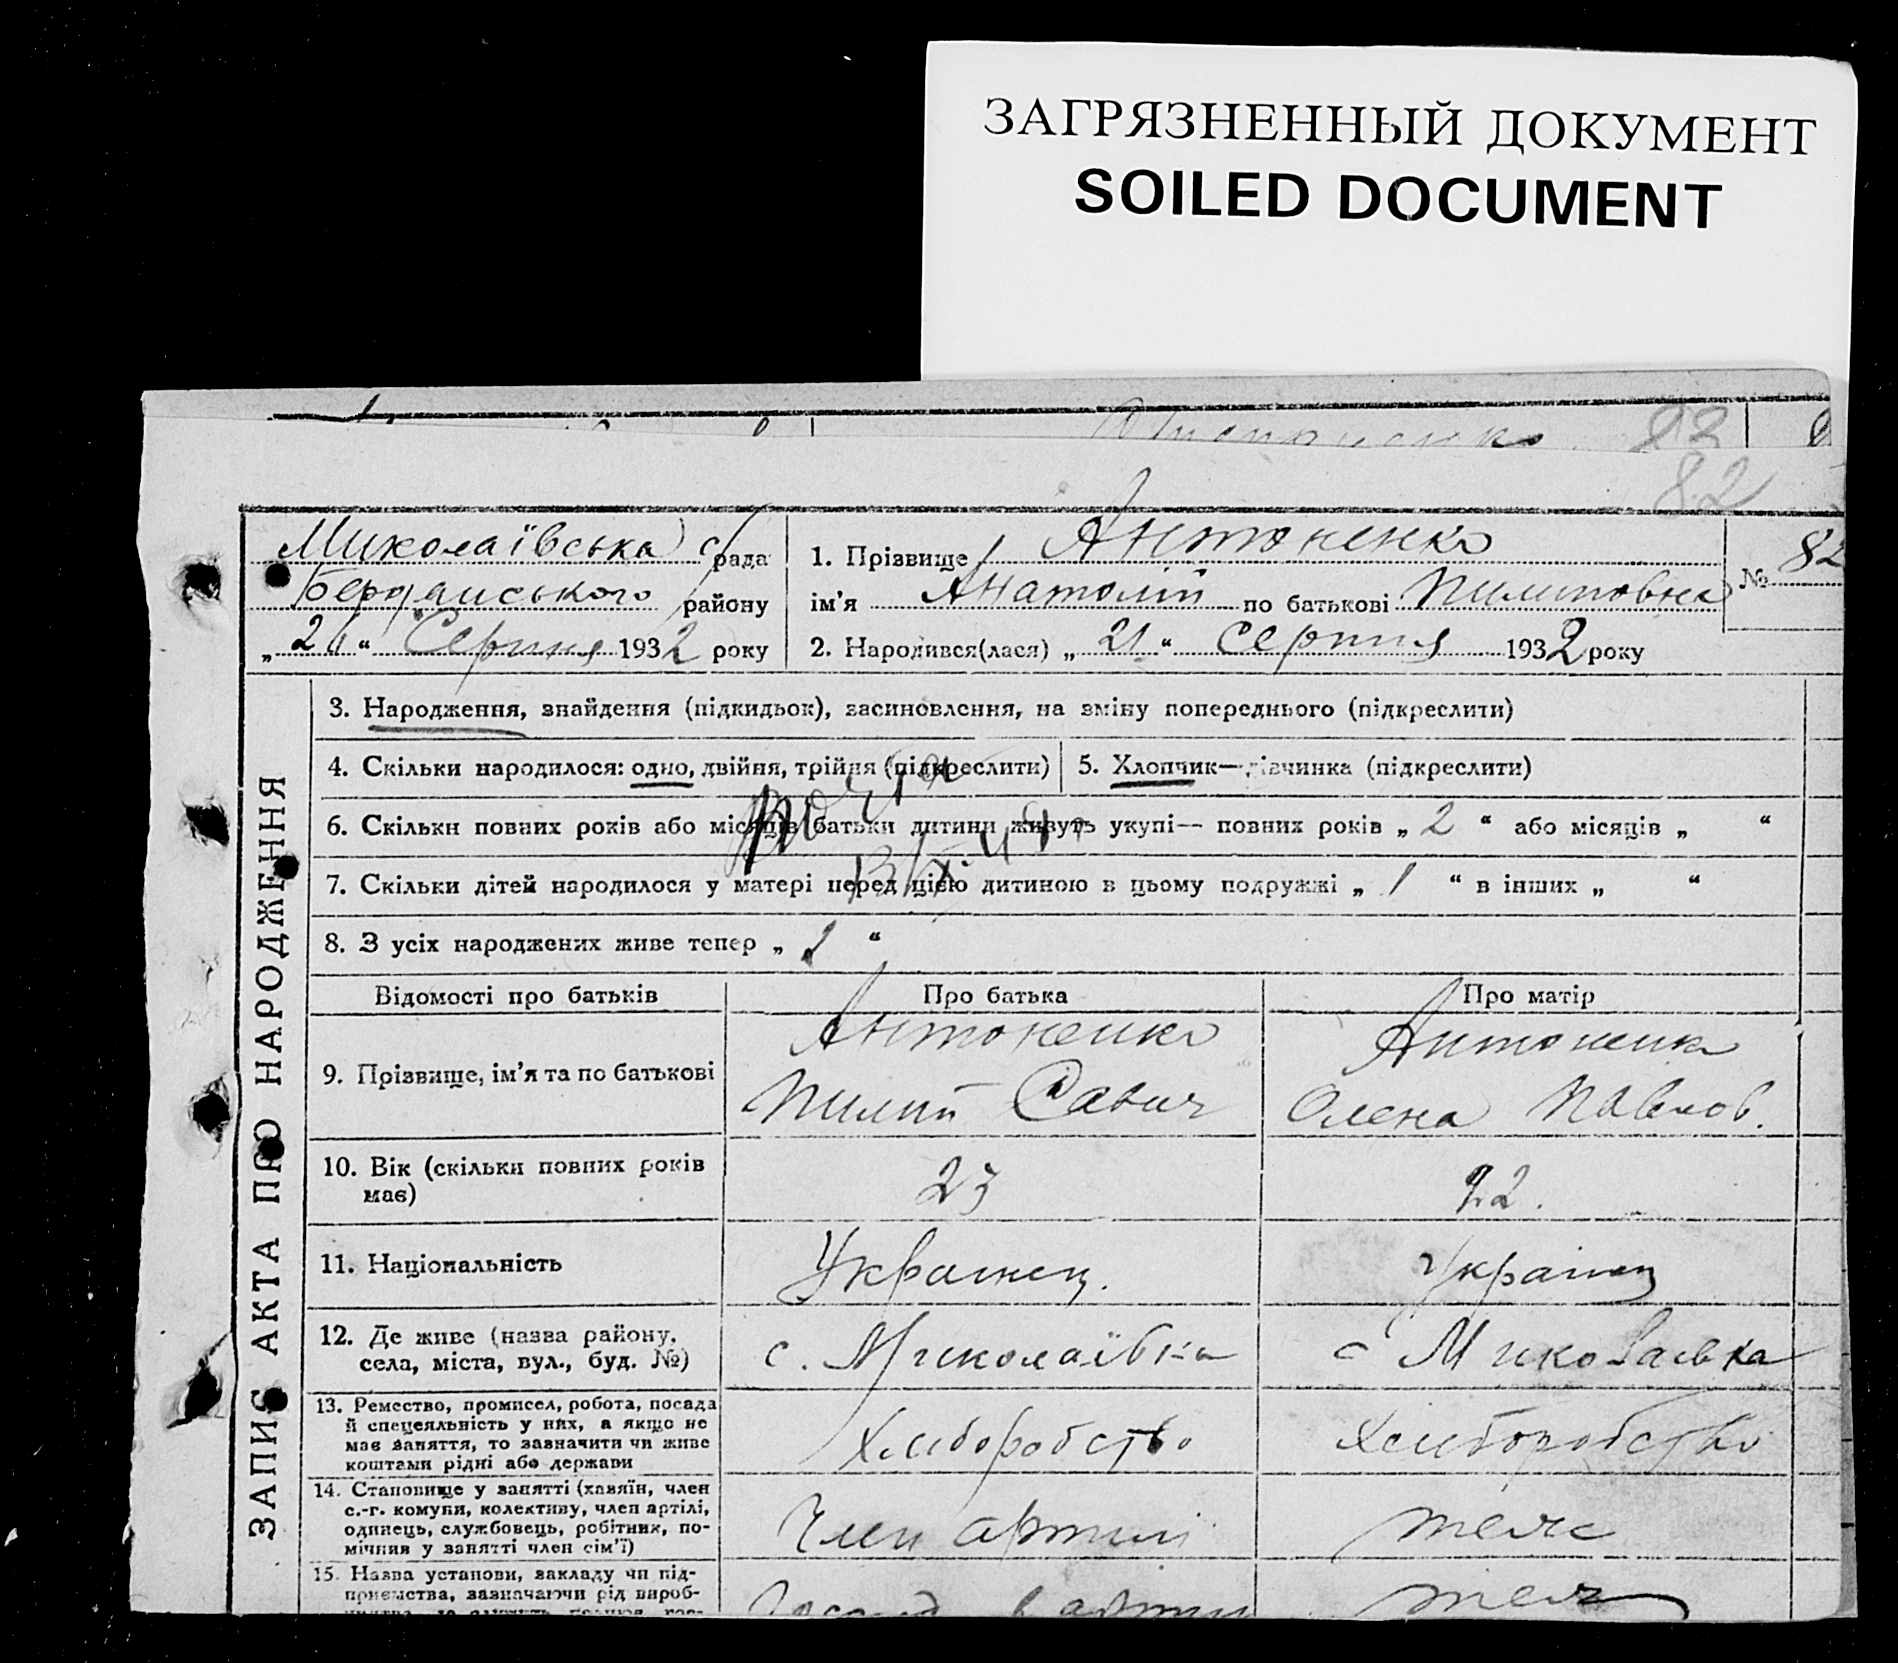 ЗАГРЯЗНЕННЫЙ ДОКУМЕНТ
SOILED DOCUMENT
83
82
ЗАПИС АКТА ПРО НАРОДЖЕННЯ
Миколаївська с/рада
Бердянського району
„ 26 “ Серпня 1932 року
1. Прізвище Антоненко
ім'я Анатолій по батькові Пилипович
№ 82
2. Народився(лася) „ 21 “ Серпня 1932 року
3. Народження, знайдення (підкидьок), засиновлення, на зміну попереднього (підкреслити)
4. Скільки народилося: одно, двійня, трійня (підкреслити)
5. Хлопчик—дівчинка (підкреслити)
6. Скільки повних років або місяців батьки дитини живуть укупі— повних років „ 2 “ або місяців „ “
7. Скільки дітей народилося у матері перед цією дитиною в цьому подружжі „ 1 “ в інших „ “
8. З усіх народжених живе тепер „ 2 “
Відомості про батьків
Про батька
Про матір
9. Прізвище, ім'я та по батькові
Антоненко
Пилип Савич
Антоненк
Олена Павлов.
10. Вік (скільки повних років
має)
23
22.
11. Національність
Українец.
Українец
12. Де живе (назва району,
села, міста, вул., буд. №)
с. Миколаївка
с Миколаївка
13. Ремество, промисел, робота, посада
й спецеяльність у них, а якщо не
має заняття, то зазначити чи живе
коштами рідні або держави
Хліборобство
Хліборобство
14. Становище у занятті (хазяїн, член
с.-г. комуни, колективу, член артілі,
одинець, службовець, робітник, по-
мічник у занятті член сім'ї)
Член артілі
теж
15. Назва установи, закладу чи під-
приємства, зазначаючи рід вироб-
в артіл
теж